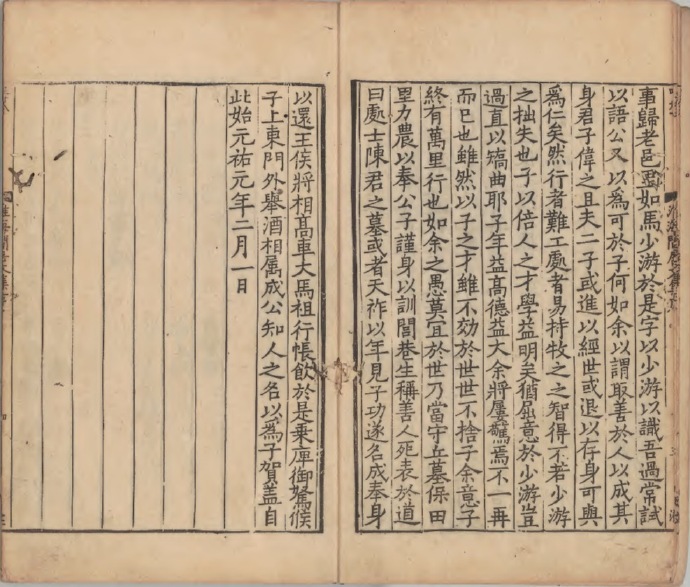 事歸老邑里如馬少游於是字以少游以識吾過常試
以語公又以為可於子何如余以謂取善於人以成其
身君子偉之且夫二子或進以經世或退以存身可與
為仁矣然行者難工處者易持牧之之智得不若少游
之拙失也子以倍人之才學益明矣猶屈意於少游豈
過直以矯曲耶子年益高德益大余將屢驚焉不一再
而已也雖然以子之才雖不効於世世不捨子余意子
終有萬里行也如余之愚莫宜於世乃當守丘墓保田
里力農以奉公子謹身以訓閭巷生稱善人死表於道
曰處士陳君之墓或者天祚以年見子功遂名成奉身
以還王侯將相髙車大馬祖行帳飲於是乗庳御駑候
子上東門外舉酒相属成公知人之名以為子賀盖自
此始元祐元年二月一日